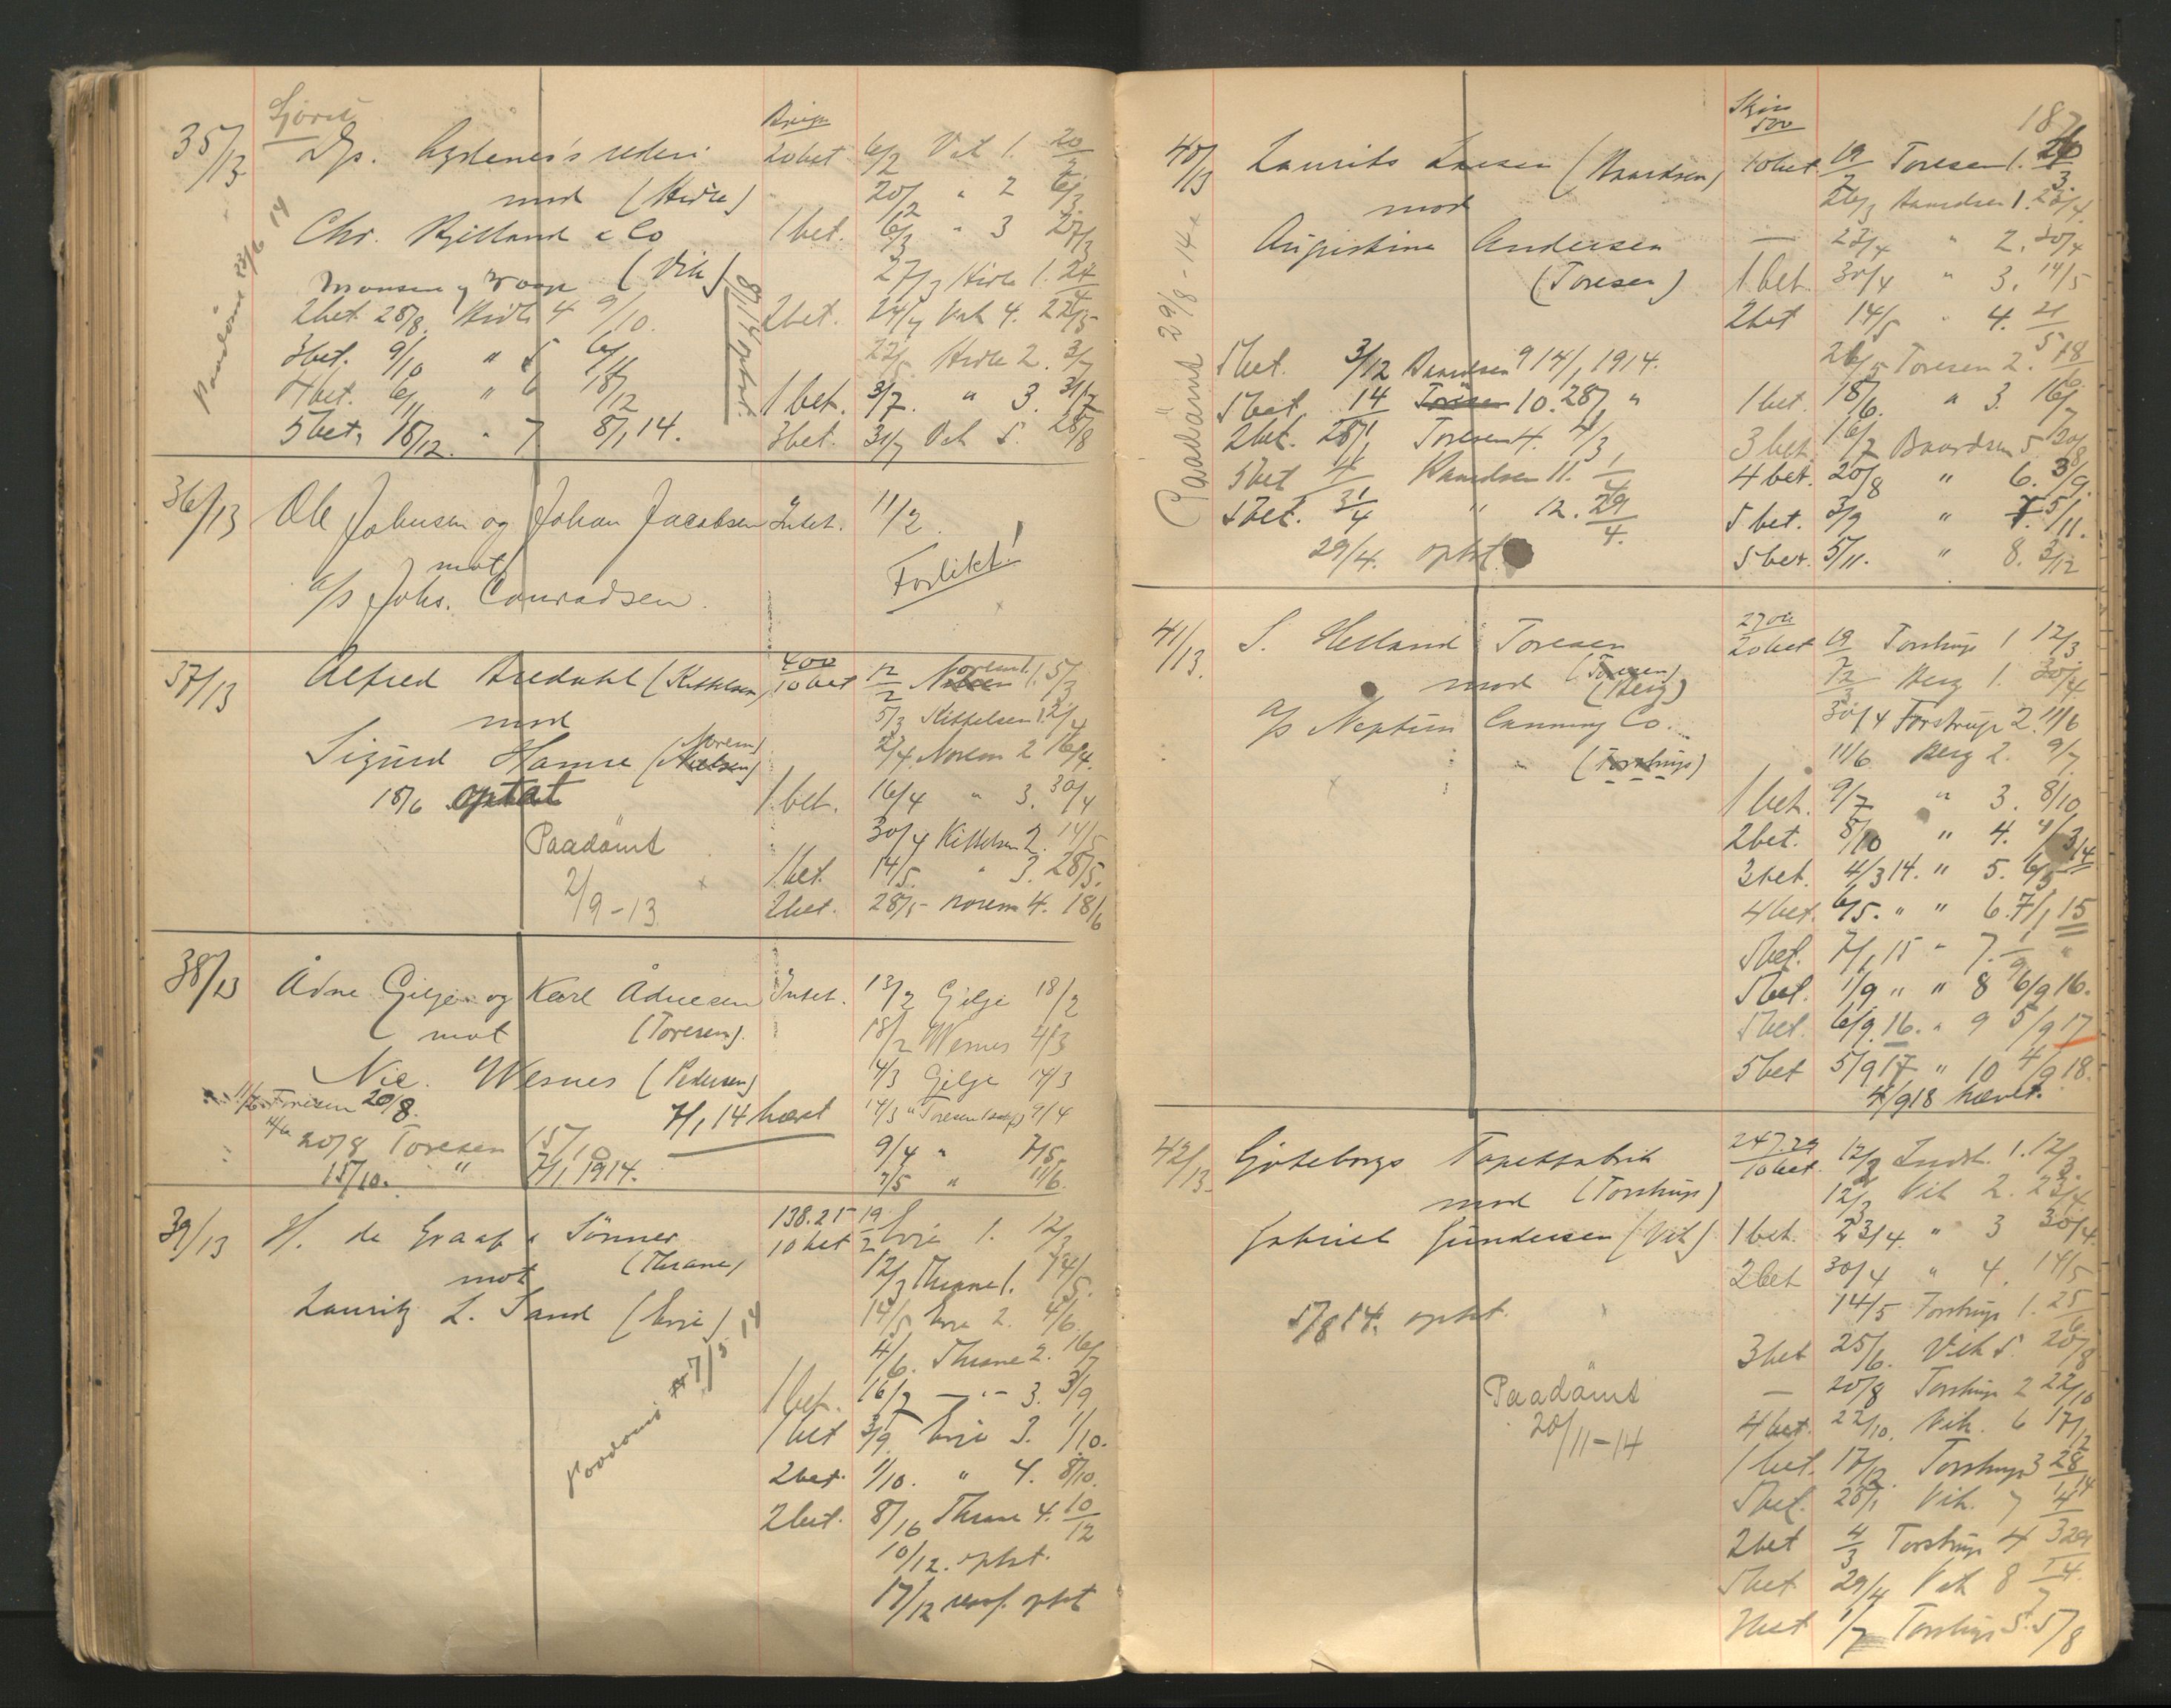 35/13
mod (Hidle)
20bet 6/2 Vik 1. 20/2
20/2 " 2 6/3
Chr. Kielland & Co 1 bet. 6/3 " 3 27/3
(Vik)
27/3 Hidle 1. 24/4
2bet 28/8 Hidle 4 9/10. 2bet. 24/4 Vik 4. 22/5
3bet. 9/10 " 5 6/11
22/5 Hidle 2. 3/7
4bet. 6/11 " 6 18/12 1 bet. 3/7. " 3. 31/7
5bet. 18/12. " 7 8/1 14. 3bet. 31/7 Vik 5. 28/8
8/1 14 optat.
36/13 Ole Johnsen og Johan Jacobsen Intet. 11/2
mot
A/S Johs. Conradsen.
Forlikt!
37/13 Alfred Bredahl (Kittelsen) 400 10 bet 12/2 Norem 1. 5/3
mod
5/3 Kittelsen 1. 2/4
Sigurd Hamre (Norem) 2/4. Norem 2 16/4.
18/6 optat 1 bet. 16/4 " 3. 30/4
Paadömt 30/4 Kittelsen 2. 14/5
2/9-13 1bet. 14/5. " 3. 28/5.
2bet. 28/5 Norem 4. 18/6
38/13 Ådne Gilje og Karl Ådnesen Intet. 13/2 Gilje 18/2
mot (Toresen). 18/2 Wesnes 4/3
Nic. Wesnes (Pedersen) 4/3 Gilje 14/3
11/6 Toresen 20/8. 7/1 14 hævet 14/3 " Toresen 9/4
20/8 Toresen 15/10 9/4 " 7/5.
15/10. " 7/1 1914. 7/5 " 11/6.
39/13 H. de Graaf & Sönner 138.25 10 bet 19/2 Eyie 1. 12/3
mot (Thrane) 12/3 Thrane 1. 14/5.
Lauritz L. Sand 14/5 2. 4/6.
4/6. Thrane 2. 16/7
1 bet. 16/7 — " — 3. 3/9
1 bet 3/9. 3. 1/10.
2bet. 1/10. " 4. 8/10.
2bet. 8/10 Thrane 4. 10/12
10/12. optat.
17/12 optat
40/13 Laurits Larsen (Baardsen) 10 bet 19/2 Toresen 1. 26/3.
mod 26/3 Baardsen 1. 23/4.
Augustina Andersen — 23/4 " 2. 30/4
(Toresen) 1 bet. 30/4 " 3. 14/5
2bet 14/5 " 4. 21/5
Paadömt 29/8-14
5bet. 3/12 Baardsen 9 14/1 1914. 26/5 Toresen 2. 18/6.
5bet. 14 Toresen 10. 28/1 " 1 bet. 18/6. " 3. 16/7
2bet. 28/1 Toresen 4. 4/3 3 bet. 16/7 Baardsen 5. 20/8
5bet 4 Baardsen 11. 1/4 4 bet. 20/8 " 6. 3/9.
5bet. 1/4 " 12. 29/4. 5 bet. 3/9 " 7. 5/11.
29/4. optat. 5 bet. 5/11. " 8. 3/12
41/13. S. Helland Toresen 2700 20bet 19/2 Torstrup 1 12/3
mod (Berg) 12/3 Berg 1. 30/4
A/S Neptun Canning Co. 30/4 Torstrup 2. 11/6
(Torstrup) 11/6 Berg 2. 9/7
1 bet. 9/7 " 3. 8/10
2bet. 8/10 " 4. 4/3 14
3bet. 4/3 14. " 5. 6/5
4bet. 6/5. " " 6. 7/1 15
5bet. 7/1 15 " 7. 1/9 "
5bet. 1/9 " " 8 6/9 16.
5bet. 6/9 16. " 9 5/9 17
5bet 5/9 17 " 10 4/9 18.
4/9 18 hævet.
42/13. Göteborgs Tapetfabrik 247.29 10bet. 12/2 Indst. 1. 12/3.
mod (Torstrup) 12/3 Vik 2. 23/4
Gabriel Gundersen (Vik) 1 bet. 23/4. " 3 30/4.
2bet 30/4 " 4. 14/5
5/8 14. optat. 14/5 Torstrup 1. 25/6
3bet 25/6. Vik 5. 20/8
Paadömt — 20/8 Torstrup 2 22/10
20/11-14 4 bet. 22/10. Vik. 6 17/12
1 bet. 17/12. Torstrup 3 28/1 14
5bet. 28/1 Vik. 7 4
2bet 4/3 Torstrup 4 29
5bet 29/4 Vik 8 1/7
1/7 Torstrup 5. 5/8